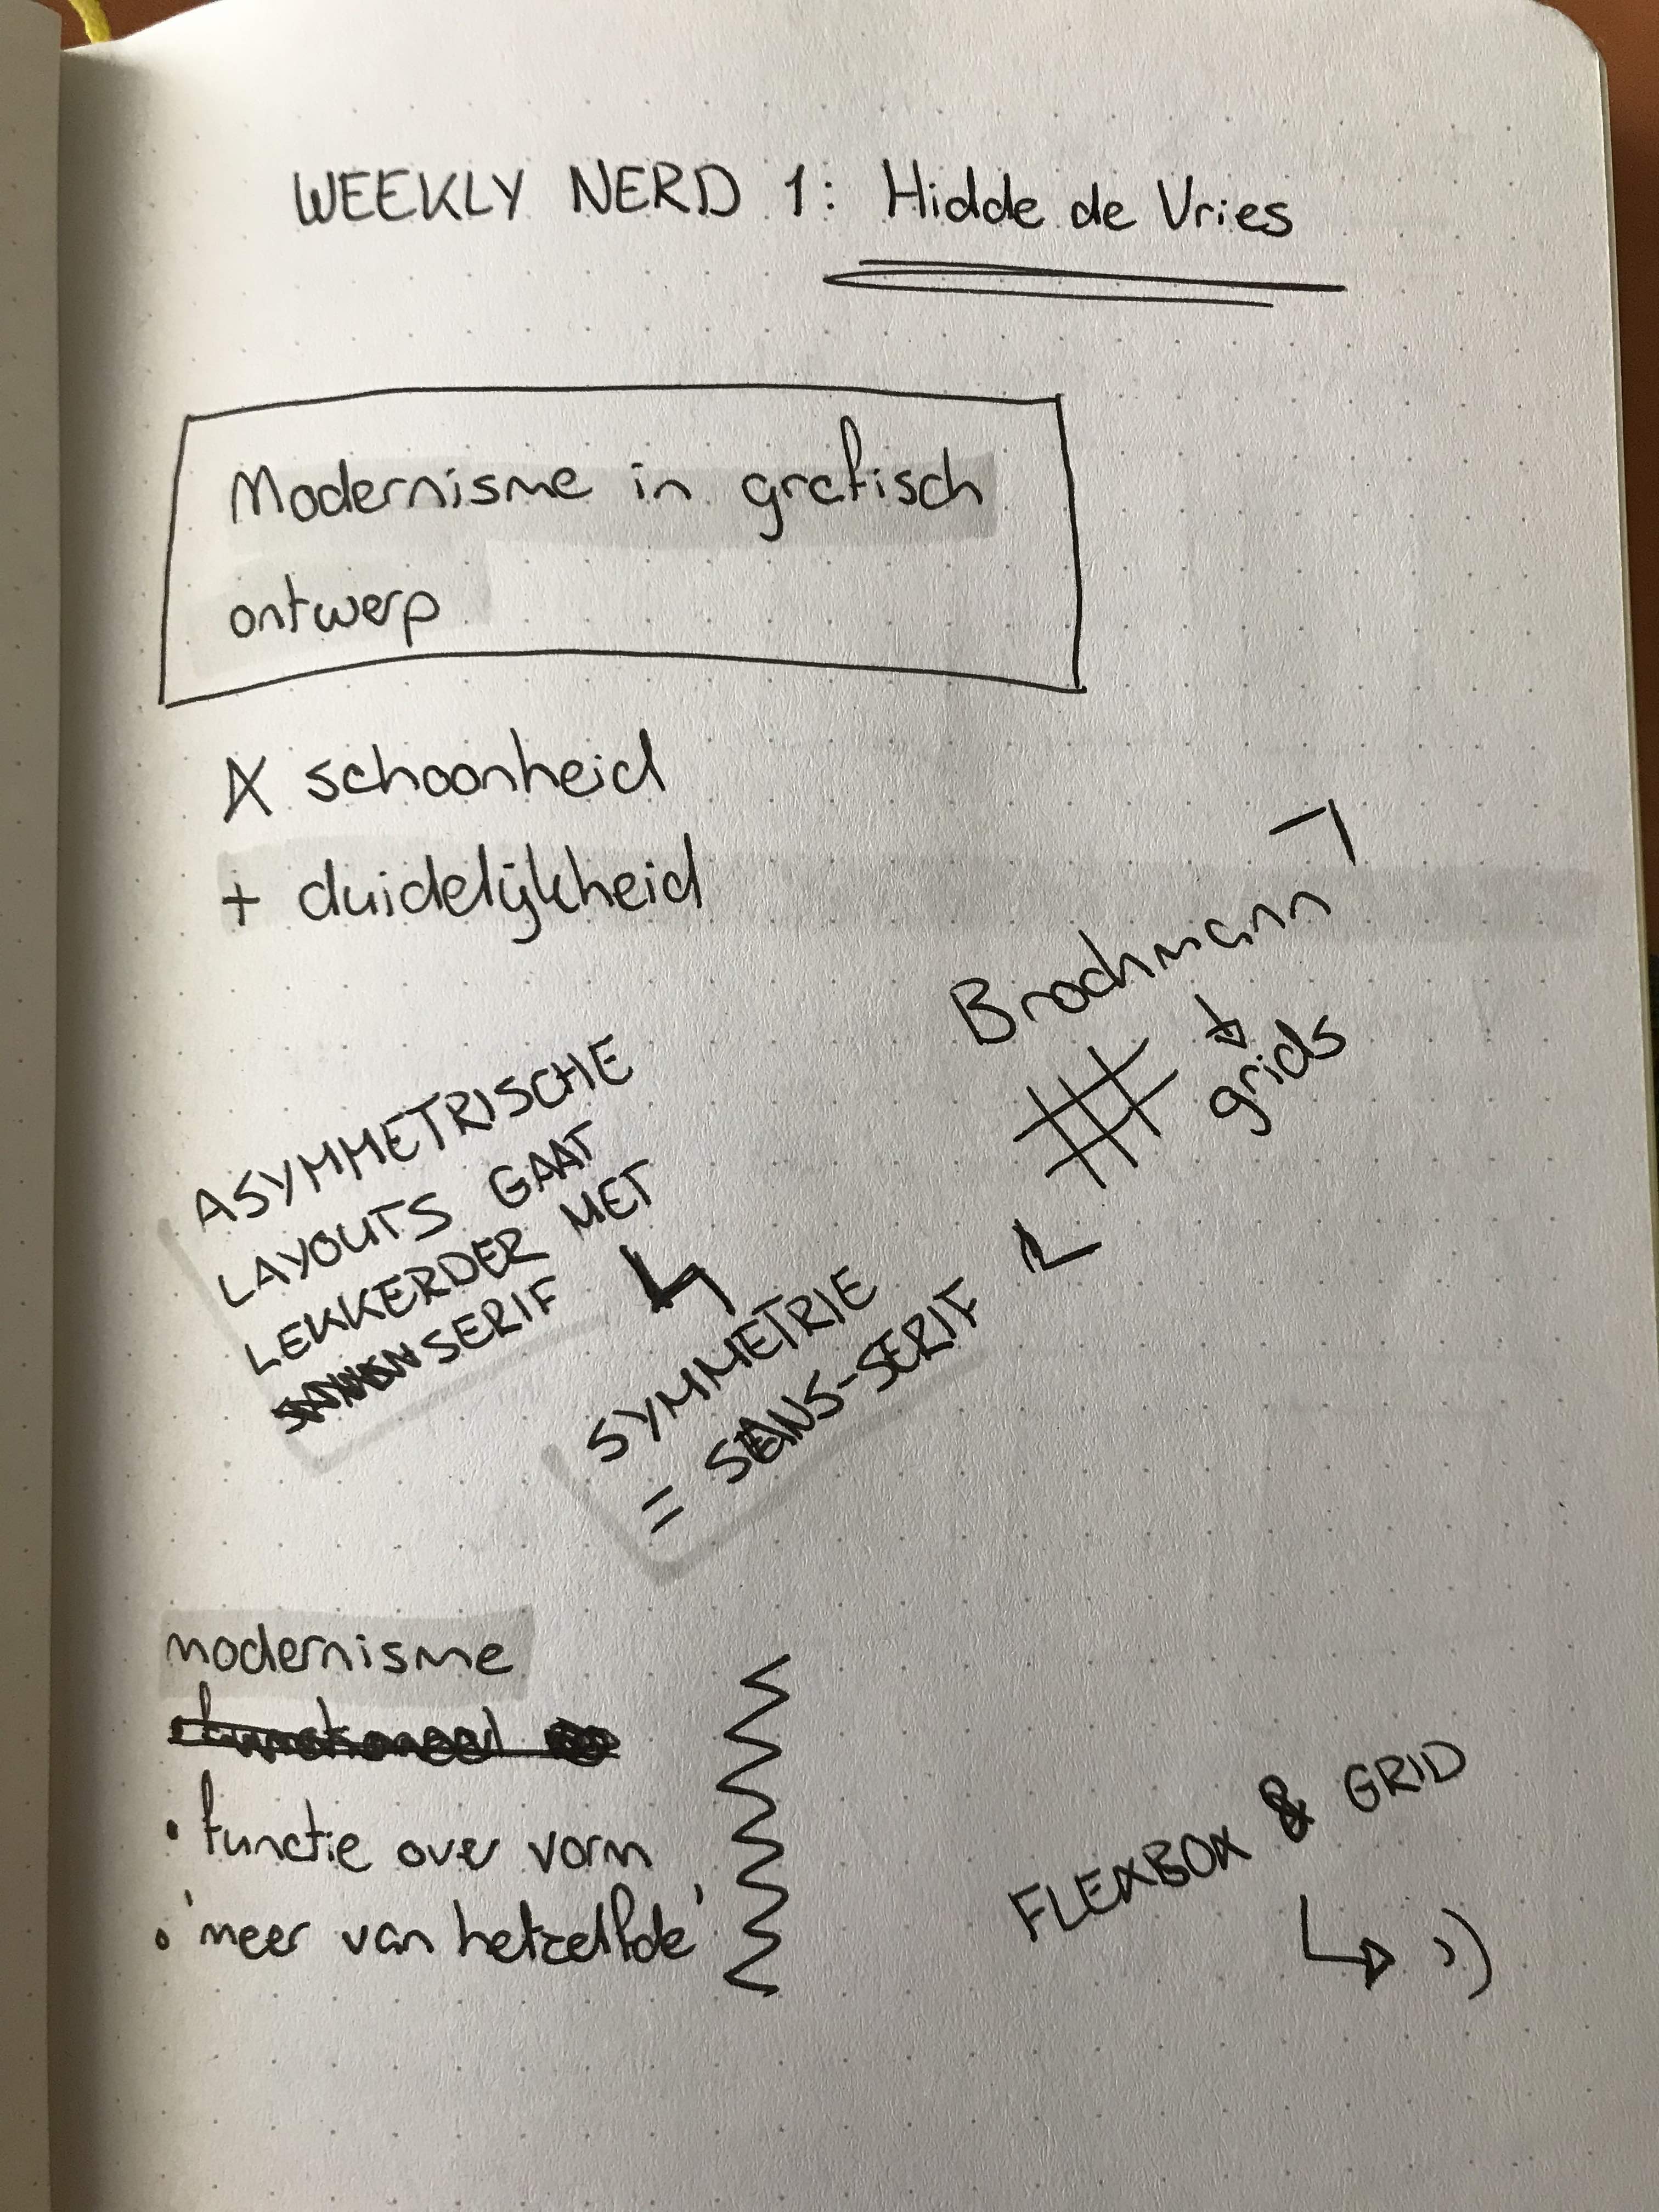 WEEKLY NERD 1: Hidde de Vries
Modernisme in grafisch
ontwerp
X schoonheid
+ duidelijkheid
Brochmann
grids
ASYMMETRISCHE
LAYOUTS GAAT
LEKKERDER MET
SERIF
SYMMETRIE
= SANS-SERIF
modernisme
• functie over vorm
• 'meer van hetzelfde'
FLEXBOX & GRID
:)